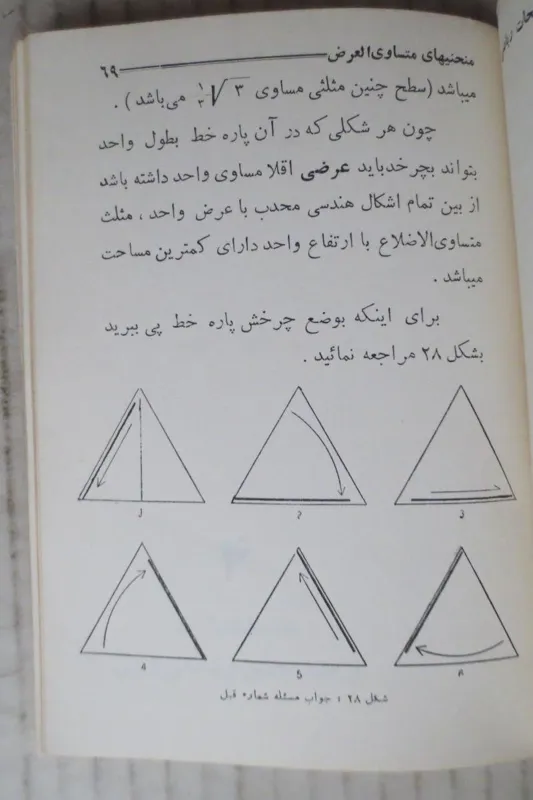 منحنیهای متساوی‌العرض ۶۹
میباشد (سطح چنین مثلثی مساوی ۱/۲ √۳ می‌باشد) .
چون هر شکلی که در آن پاره خط بطول واحد
بتواند بچرخد باید عرضی اقلا مساوی واحد داشته باشد
از بین تمام اشکال هندسی محدب با عرض واحد ، مثلث
متساوی‌الاضلاع با ارتفاع واحد دارای کمترین مساحت
میباشد .
برای اینکه بوضع چرخش پاره خط پی ببرید
بشکل ۲۸ مراجعه نمائید .
شکل ۲۸ : جواب مسئله شماره قبل